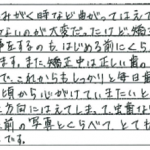 みがく時など曲がってはえて
よいのが大変だったけど矯正
をするのも、はじめる前にくら
ます。また矯正中は正しい歯の
で、これからもしっかりと毎日歯
頃から心がけていきたいと
方向にはえてしまって、虫歯な
前の写真とくらべて、とても
です。